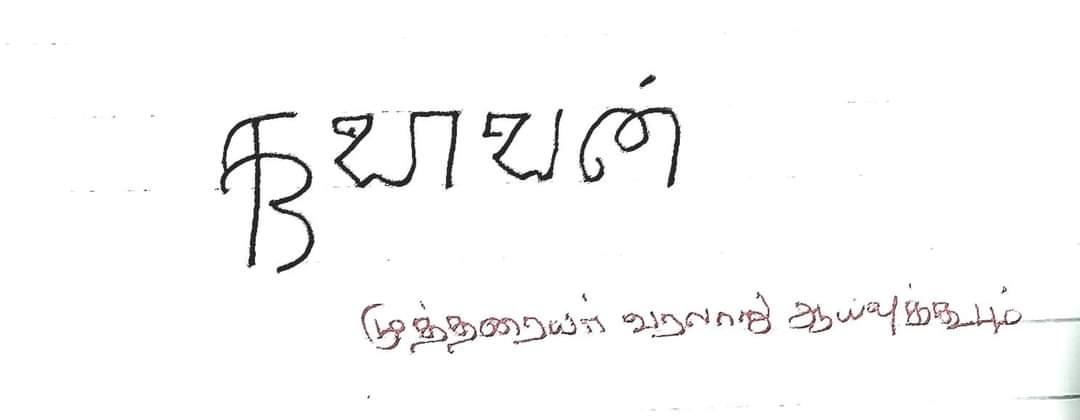 குவாவன்
முத்தரையர் வரலாறு ஆய்வுக்கூடம்